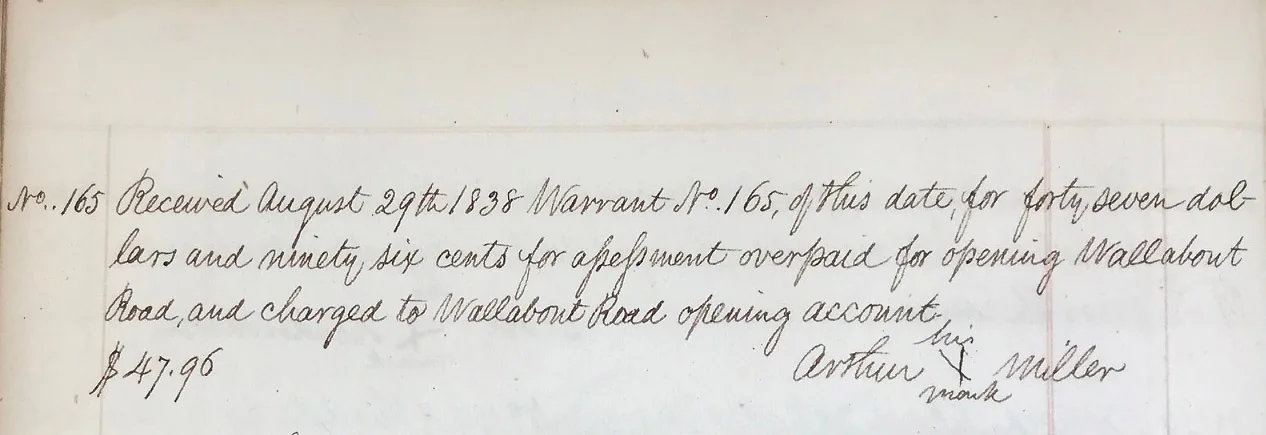 No. 165 Received August 29th 1838 Warrant No. 165, of this date, for forty, seven dol-
lars and ninety, six cents for assessment overpaid for opening Wallabout
Road, and charged to Wallabout Road opening account.
$47.96 Arthur his X mark Miller